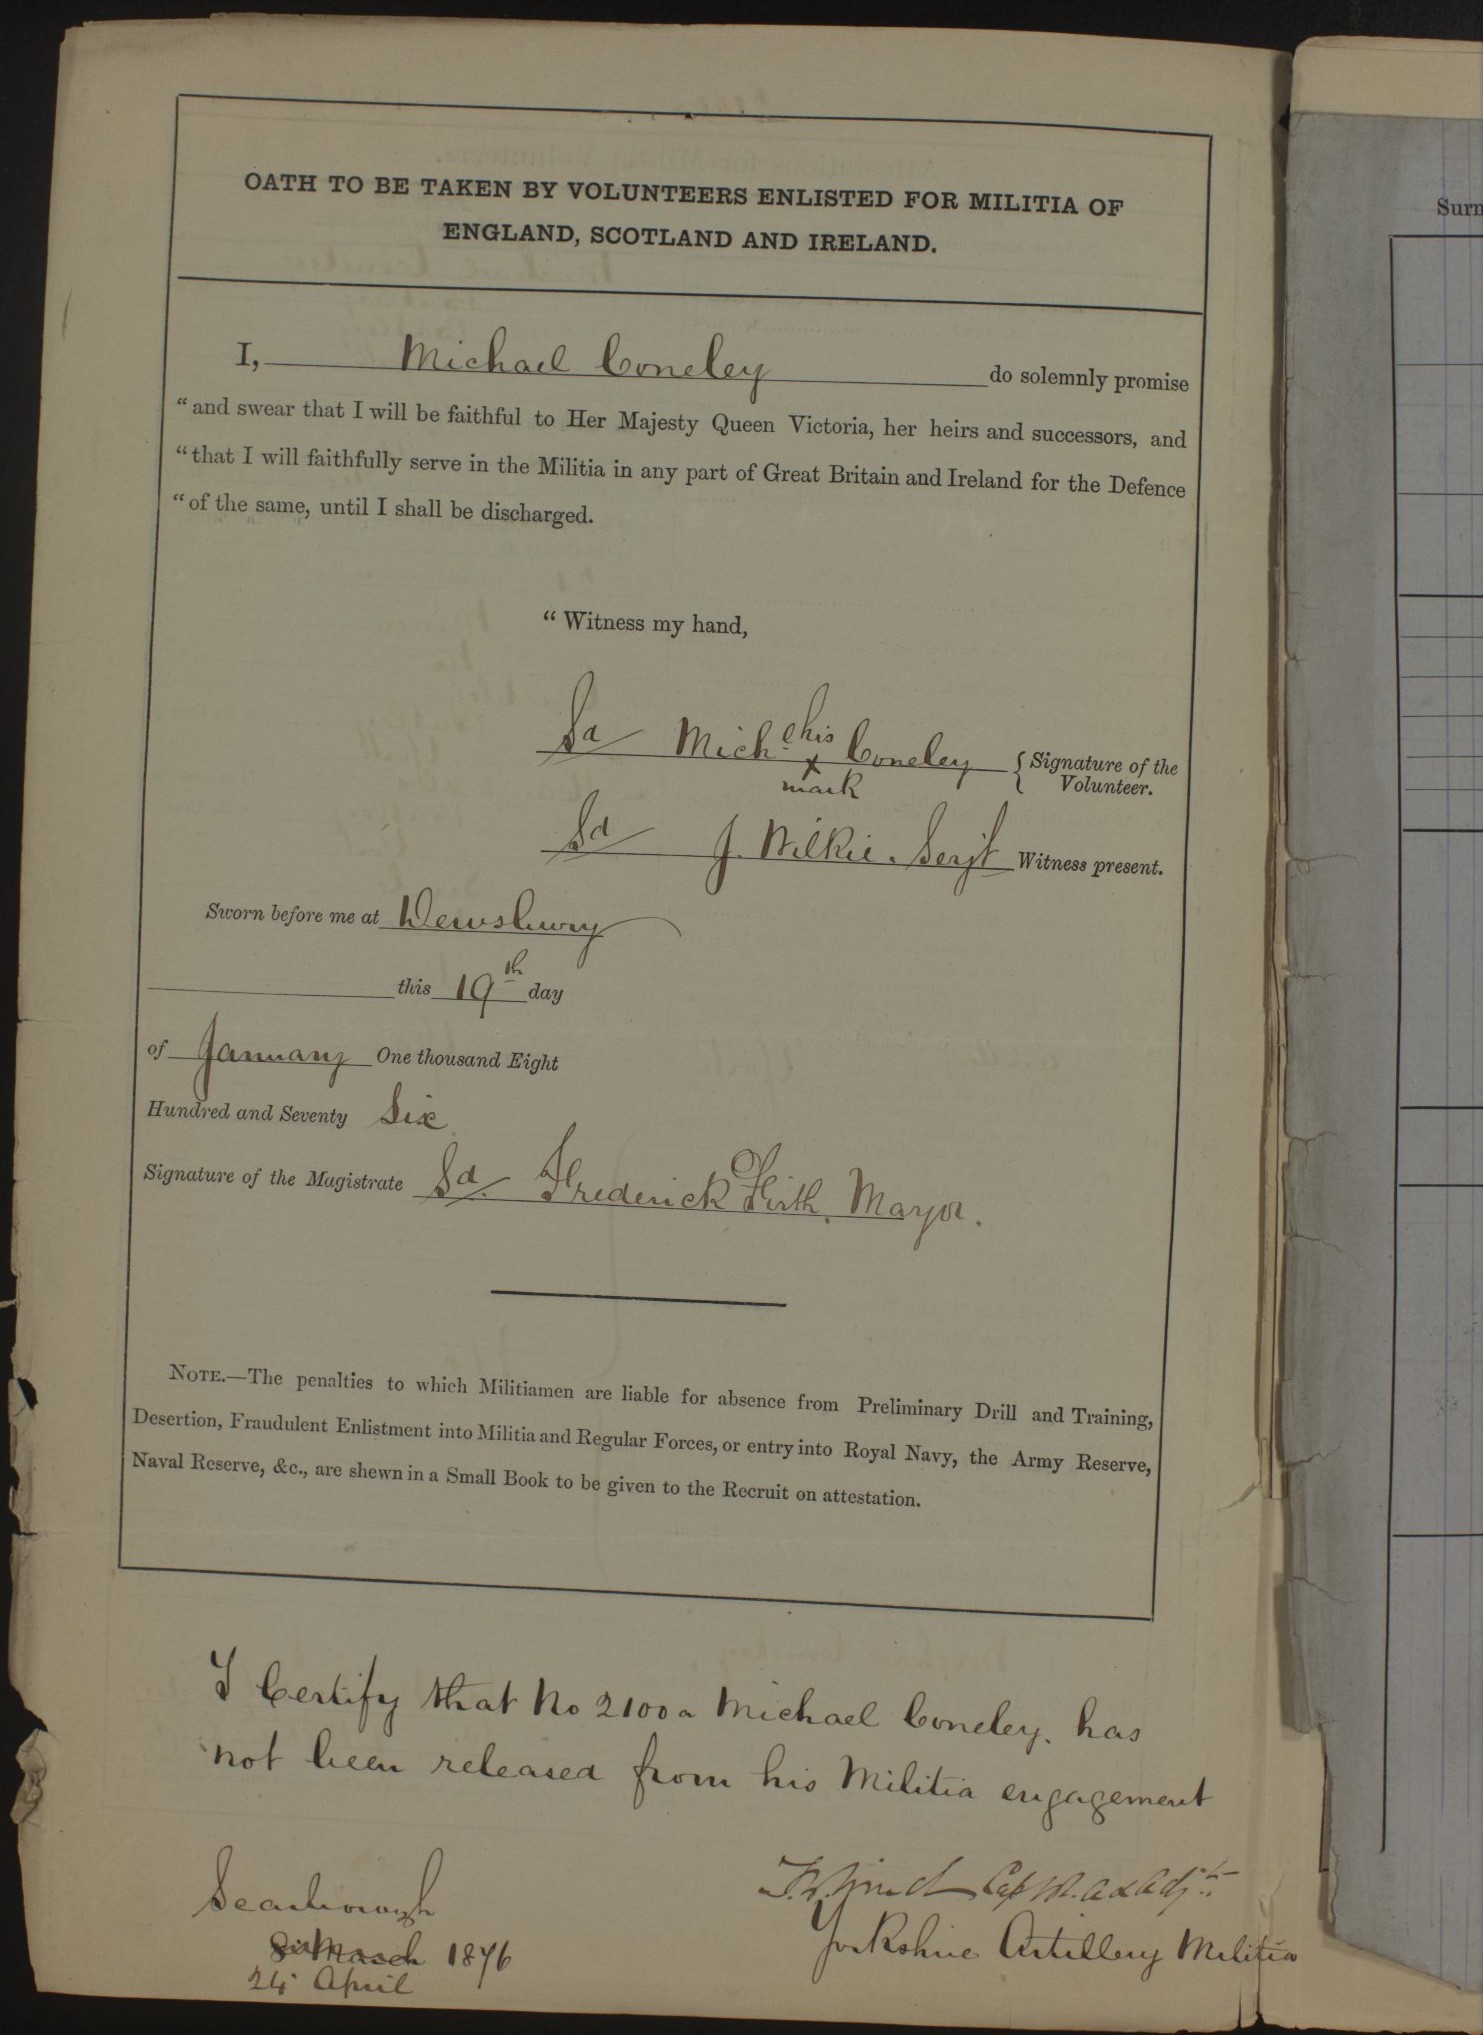 OATH TO BE TAKEN BY VOLUNTEERS ENLISTED FOR MILITIA OF
ENGLAND, SCOTLAND AND IRELAND.
I, Michael Coneley do solemnly promise
"and swear that I will be faithful to Her Majesty Queen Victoria, her heirs and successors, and
"that I will faithfully serve in the Militia in any part of Great Britain and Ireland for the Defence
"of the same, until I shall be discharged.
"Witness my hand,
Sd Michl his x mark Coneley { Signature of the Volunteer.
Sd J. Wilkie. Serjt Witness present.
Sworn before me at Dewsbury
this 19th day
of January One thousand Eight
Hundred and Seventy Six
Signature of the Magistrate Sd. Frederick Firth, Mayor.
NOTE.—The penalties to which Militiamen are liable for absence from Preliminary Drill and Training,
Desertion, Fraudulent Enlistment into Militia and Regular Forces, or entry into Royal Navy, the Army Reserve,
Naval Reserve, &c., are shewn in a Small Book to be given to the Recruit on attestation.
I Certify that No 2100a Michael Coneley. has
not been released from his Militia engagement
Scarborough
Capt R.A & Adjt
March 1876
Yorkshire Artillery Militia
24 April
Surn